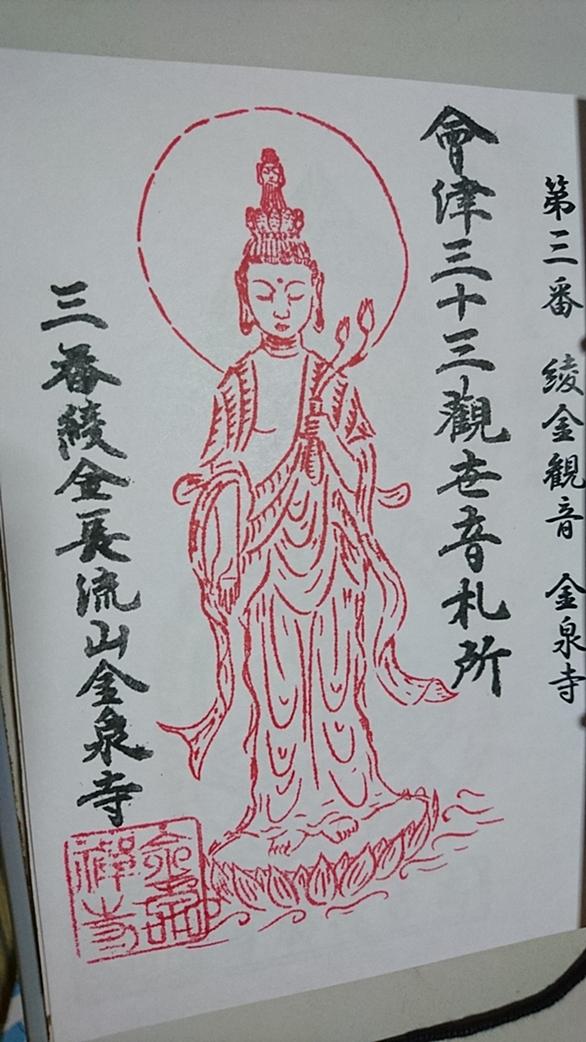 第三番 綾金観音 金泉寺
會津三十三觀世音札所
三番綾金長流山金泉寺
金泉
禅寺